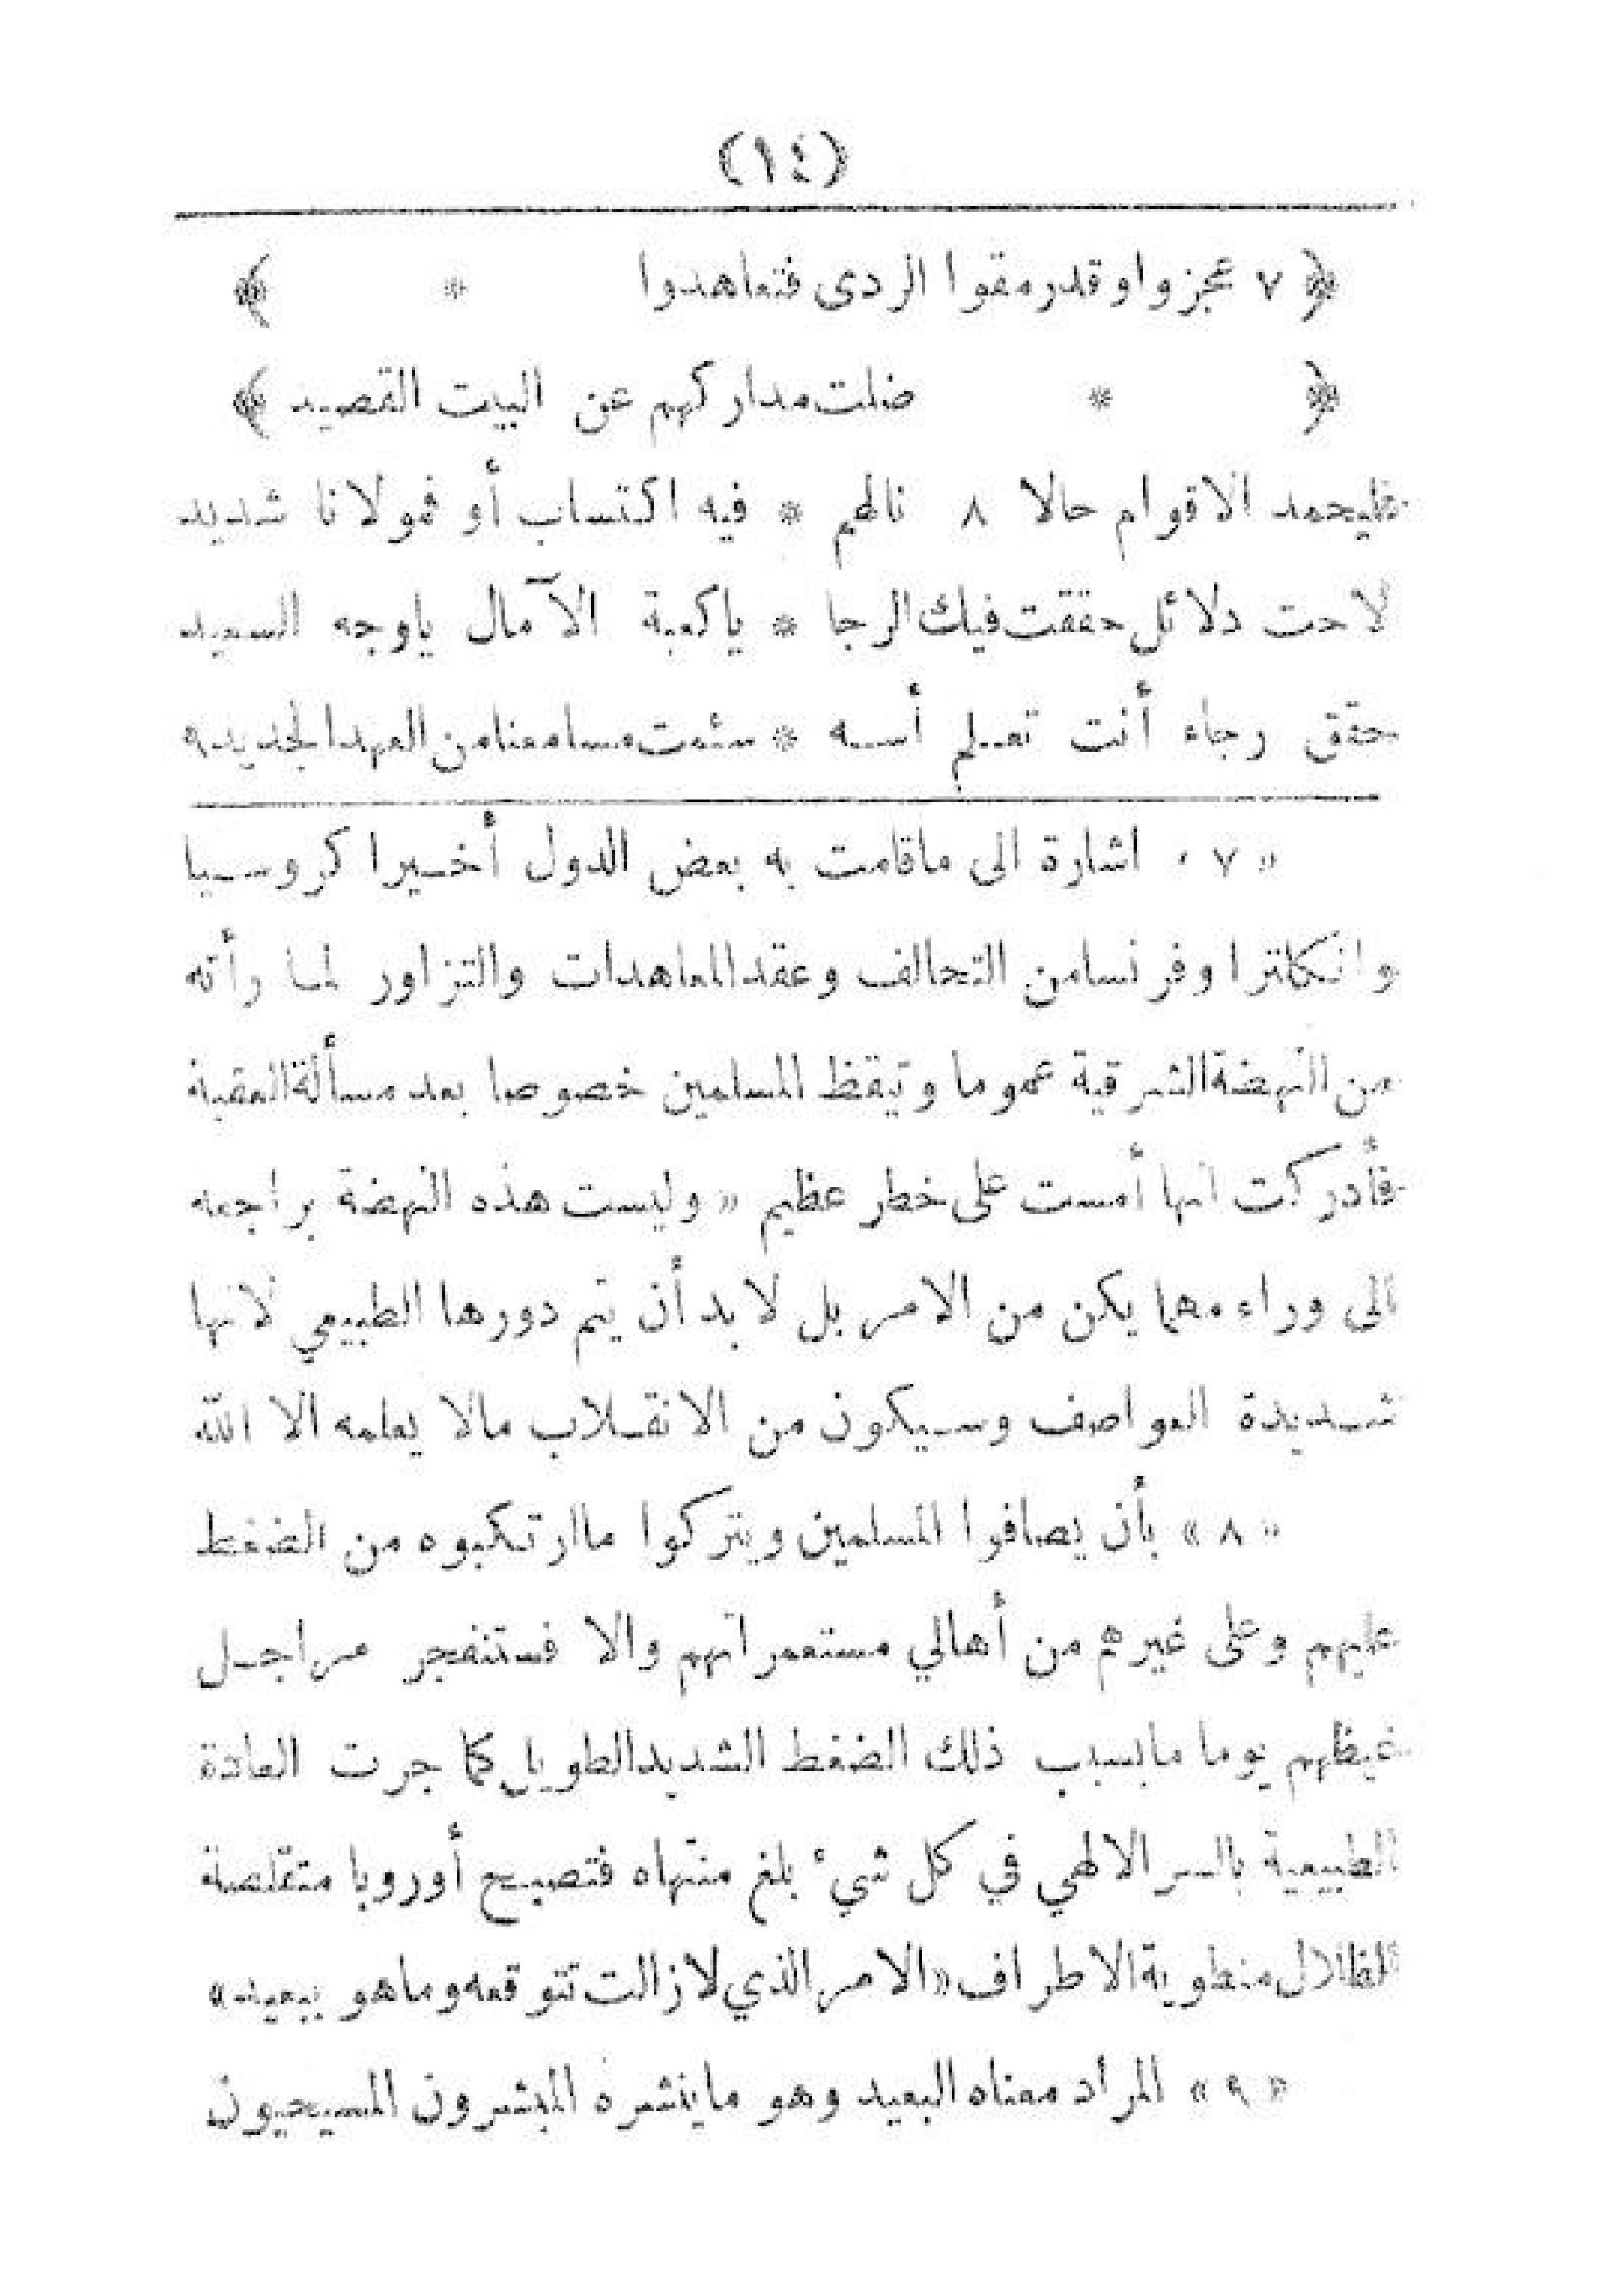 (١٤)
﴿ ٧ عجزوا وقد رمقوا الردى فتعاهدوا * ﴾
﴿ * ضلت مداركهم عن البيت القصيد ﴾
فليحمد الاقوام حالا ٨ نالهم * فيه اكتساب أو فمولانا شديد
لاحت دلائل حققت فيك الرجا * ياكعبة الآمال ياوجه السعيد
حقق رجاء أنت تعلم أسه * سئمت مسامعنا من العهد الجديد ٩
« ٧ » اشارة الى ماقامت به بعض الدول أخيرا كروسيا
وانكلترا وفرنسا من التحالف وعقد المعاهدات والتزاور لما رأته
من النهضة الشرقية عموما وتيقظ المسلمين خصوصا بعد مسألة العقبة
فأدركت انها أمست على خطر عظيم « وليست هذه النهضة براجعه
الى وراء مهما يكن من الامر بل لا بد أن يتم دورها الطبيعي لانها
شديدة العواصف وسيكون من الانقلاب مالا يعلمه الا الله
« ٨ » بأن يصافوا المسلمين ويتركوا ماارتكبوه من الضغط
عليهم وعلى غيرهم من أهالي مستعمراتهم والا فستنفجر مراجل
غيظهم يوما مابسبب ذلك الضغط الشديد الطويل كما جرت العادة
الطبيعية بالسر الالهي في كل شيء بلغ منتهاه فتصبح أوروبا متقلصة
الظلال منطوية الاطراف «الامر الذي لازالت تتوقعه وماهو ببعيد»
« ٩ » المراد معناه البعيد وهو ماينشره المبشرون المسيحيون